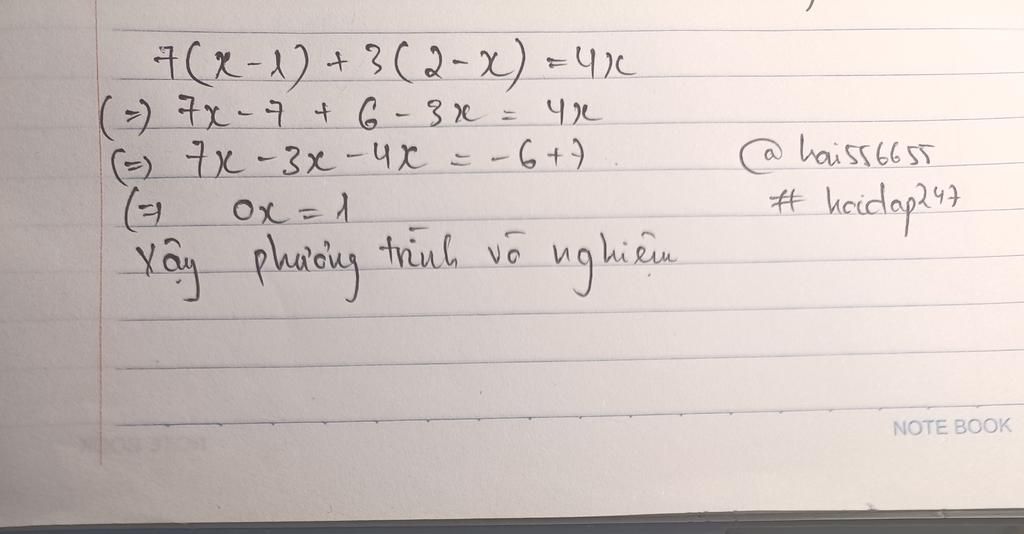 7(x-1) + 3(2-x) = 4x
(=) 7x - 7 + 6 - 3x = 4x
(=) 7x - 3x - 4x = -6+7
@hai556655
(=) 0x = 1
# hoidap247
Vậy phương trình vô nghiệm
NOTE BOOK